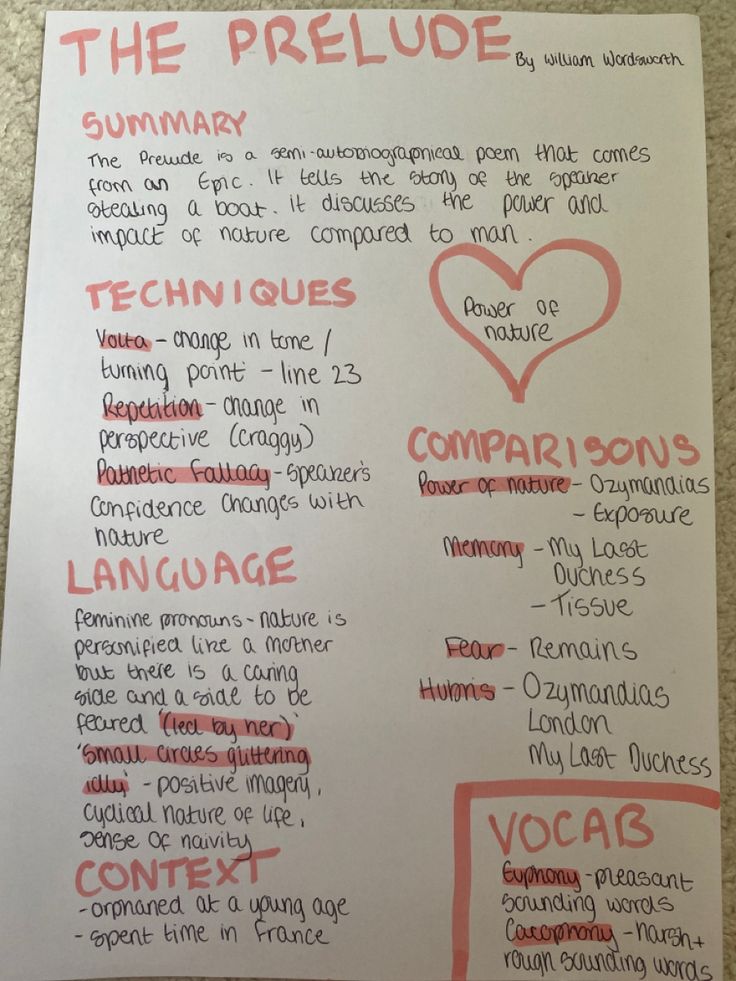 THE PRELUDE
By William Wordsworth
SUMMARY
The Prelude is a semi-autobiographical poem that comes
from an Epic. It tells the story of the speaker
stealing a boat. it discusses the power and
impact of nature compared to man.
Power of
nature
TECHNIQUES
Volta - change in tone /
turning point - line 23
Repetition - change in
perspective (craggy)
Pathetic Fallacy - speaker's
confidence changes with
nature
LANGUAGE
feminine pronouns - nature is
personified like a mother
but there is a caring
side and a side to be
feared '(led by her)'
'small circles glittering
idly' - positive imagery,
cyclical nature of life,
sense of naivity
CONTEXT
- orphaned at a young age
- spent time in France
COMPARISONS
Power of nature - Ozymandias
- Exposure
Memory - My Last
Duchess
- Tissue
Fear - Remains
Hubris - Ozymandias
London
My Last Duchess
VOCAB
Euphony - pleasant
sounding words
Cacophony - harsh +
rough sounding words